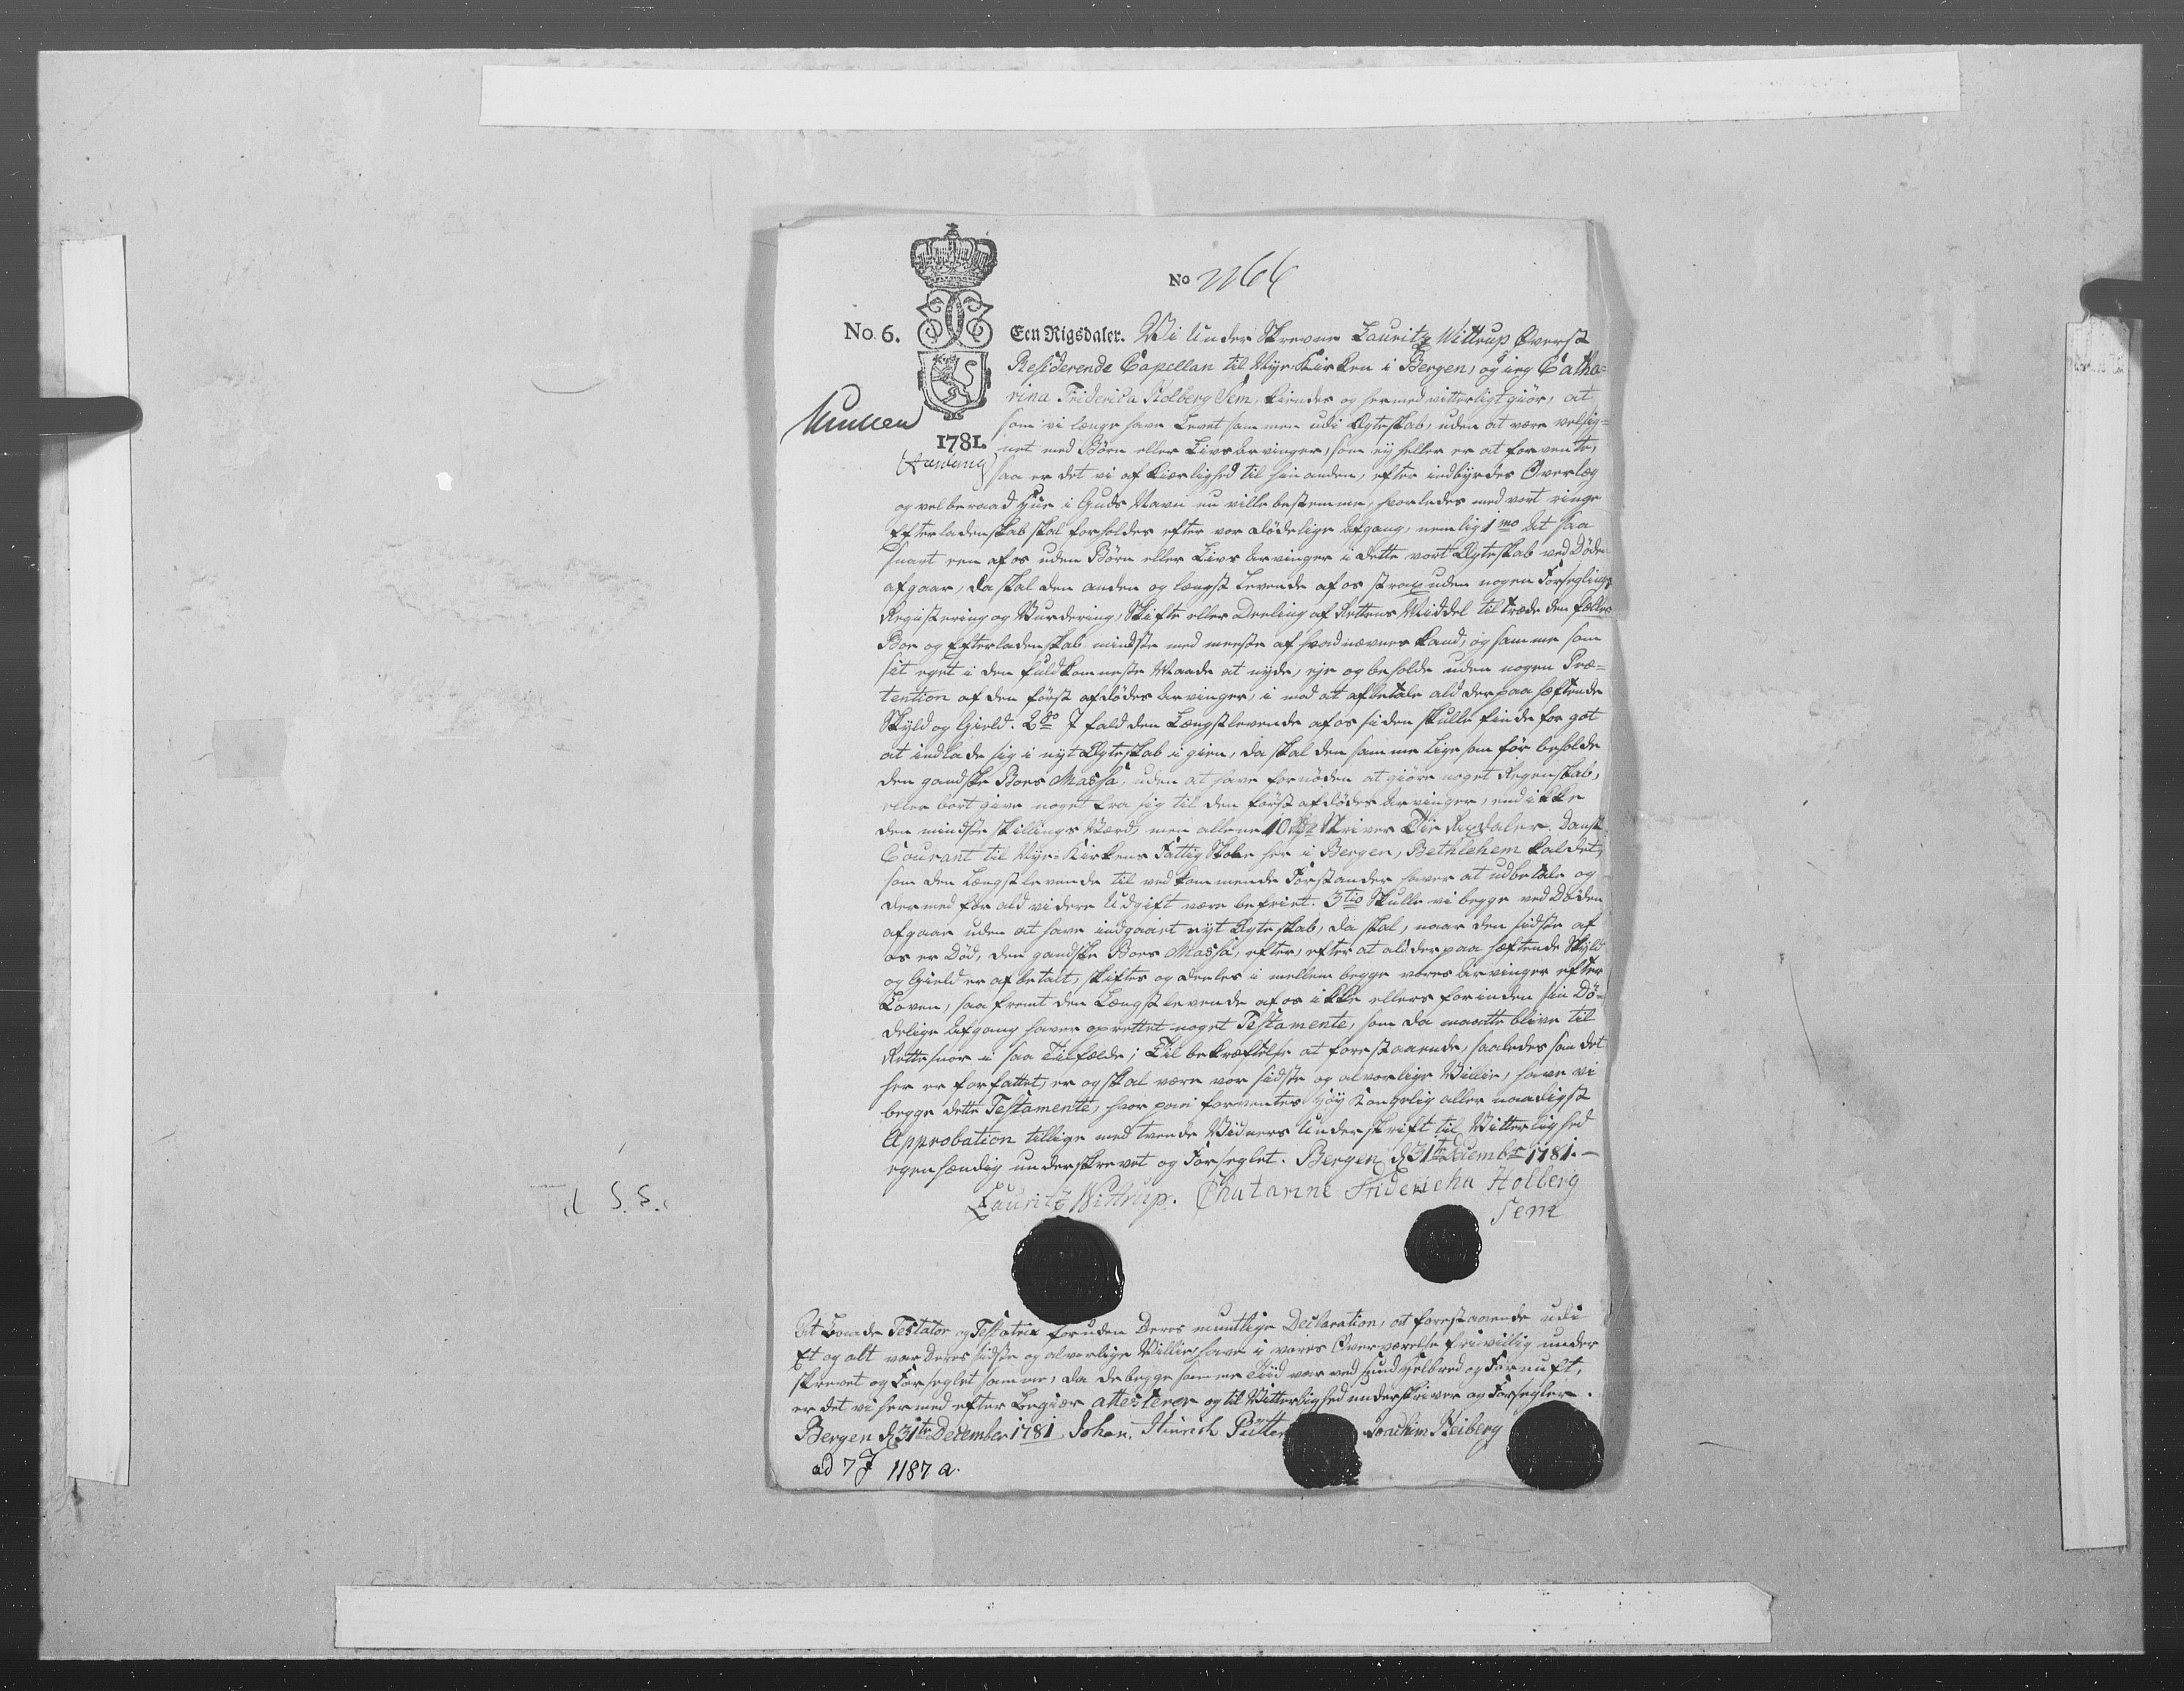 No 2266
No. 6.
Een Rigsdaler. Wi Under Skrevne Lauritz Wittrup Øverst
Residerende Capellan til Nye-Kirken i Bergen, og ieg Catha=
rina Friderica Holberg Sem, kiendes og hermed vitterligt giør, at
som vi længe have Levet sammen udi Ægteskab, uden at være velsig=
1781.
net med Børn eller Livs Arvinger, som ey heller er at forvente,
saa er det vi af Kiærlighed til hinanden, efter indbyrdes Overlæg
og velberaad Hue i Guds Navn nu ville bestemme, hvorledes med vort ringe
Efterladenskab skal forholdes efter vor dødelige Afgang, nemlig 1mo At saa
snart een af os uden Børn eller Livs Arvinger i dette vort Ægteskab ved Døden
afgaar, da skal den anden og længst Levende af os strax uden nogen Forseglings
Registering og Vurdering, Skifte eller Deeling af Rettens Middel tiltræde den fælles
Boe og Efterladenskab mindste med meeste af hvad nævnes kand, og samme som
sit eget i den fuldkomneste Maade at nyde, eje og beholde uden nogen Præ=
tention af den først afdødes Arvinger, i mod at afbetale ald derpaa hæftende
Skyld og Gield. 2do I fald den Længstlevende af os siden skulle finde for got
at indlade sig i nyt Ægteskab igien, da skal den samme Lige som før beholde
den gandske Boes Massa, uden at have fornøden at giøre noget Regenskab,
eller bort give noget fra sig til den først afdødes Arvinger, end ikke
den mindste skillings Værd, men allene 10 Rdr Skriver Tie Rixdaler Dansk
Courant til Nye-Kirkens Fattig Skole her i Bergen, Bethlehem kaldet,
som den Længstlevende til vedkommende Forstander haver at udbetale og
dermed for ald videre Udgift være befriet. 3tio Skulle vi begge ved Døden
afgaae uden at have indgaaet nyt Ægteskab, da skal, naar den sidste af
os er Død, den gandske Boes Massa, efter, efter at ald derpaa hæftende Skyld
og Gield er afbetalt, skiftes og deeles i mellem begge vores Arvinger efter
Loven, saa fremt den Længstlevende af os ikke ellers forinden sin Dø=
delige Afgang haver oprettet noget Testamente, som da maatte blive til
Rettesnor i saa Tilfælde; Til bekræftelse at forestaaende, saaledes som det
her er forfattet, er og skal være vor sidste og alvorlige Villie, have vi
begge dette Testamente, hvor paa forventes Høy Kongelig aller naadigst
Approbation tillige med tvende Vidners Underskrift til Vitterlighed
egenhændig underskrevet og Forseglet. Bergen d 31te Decembr 1781.
Lauritz Wittrup. Chatarine Friderieha Holberg
Sem
At baade Testator og Testatrix foruden Deres mundtlige Declaration, at forestaaende udi
Et og alt var Deres sidste og alvorlige Villie, have i vores Overværelse frivillig under
skrevet og Forseglet samme, da de begge samme Tiid var ved sund Helbred og Fornuft,
er det vi hermed efter Begiær attesterer og til Vitterlighed underskriver og Forsegler.
Bergen d 31te December 1781 Johan Hinrich Pütter Joachim Heiberg
ad 7 J 1187 a.
Til S. S.